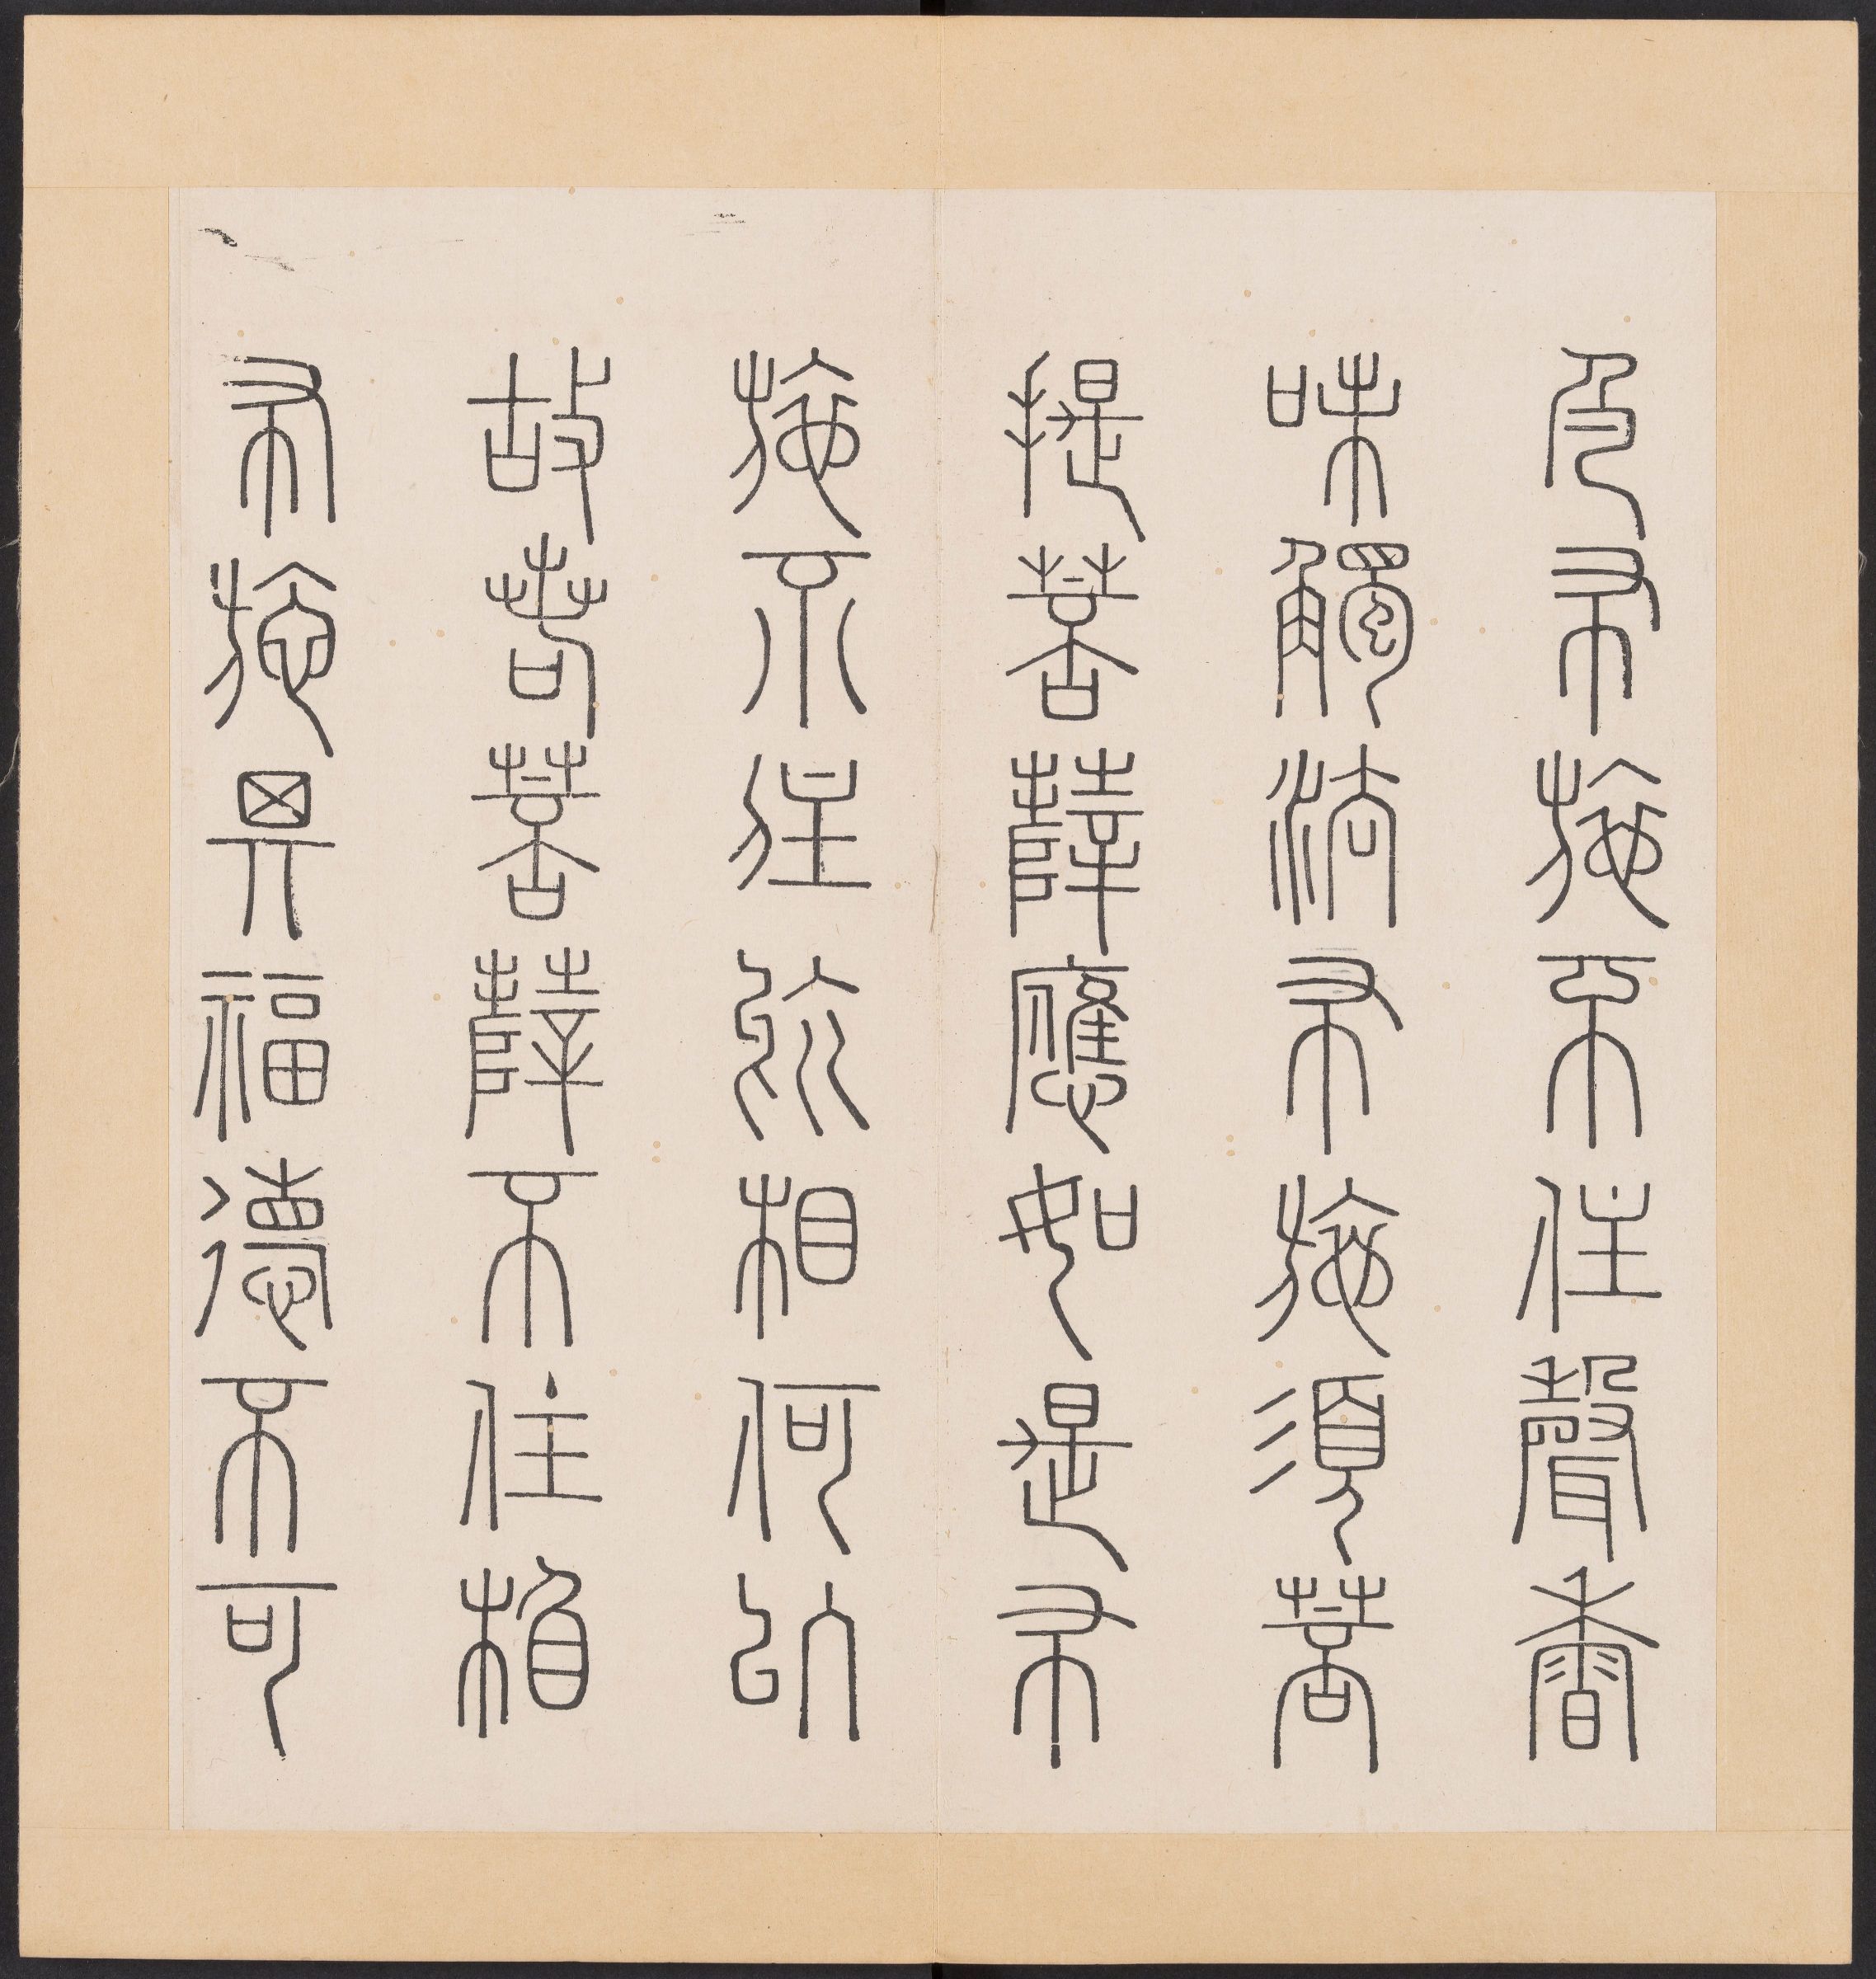 色布施不住聲香
味觸法布施須菩
提菩薩應如是布
施不住於相何以
故若菩薩不住相
布施其福德不可